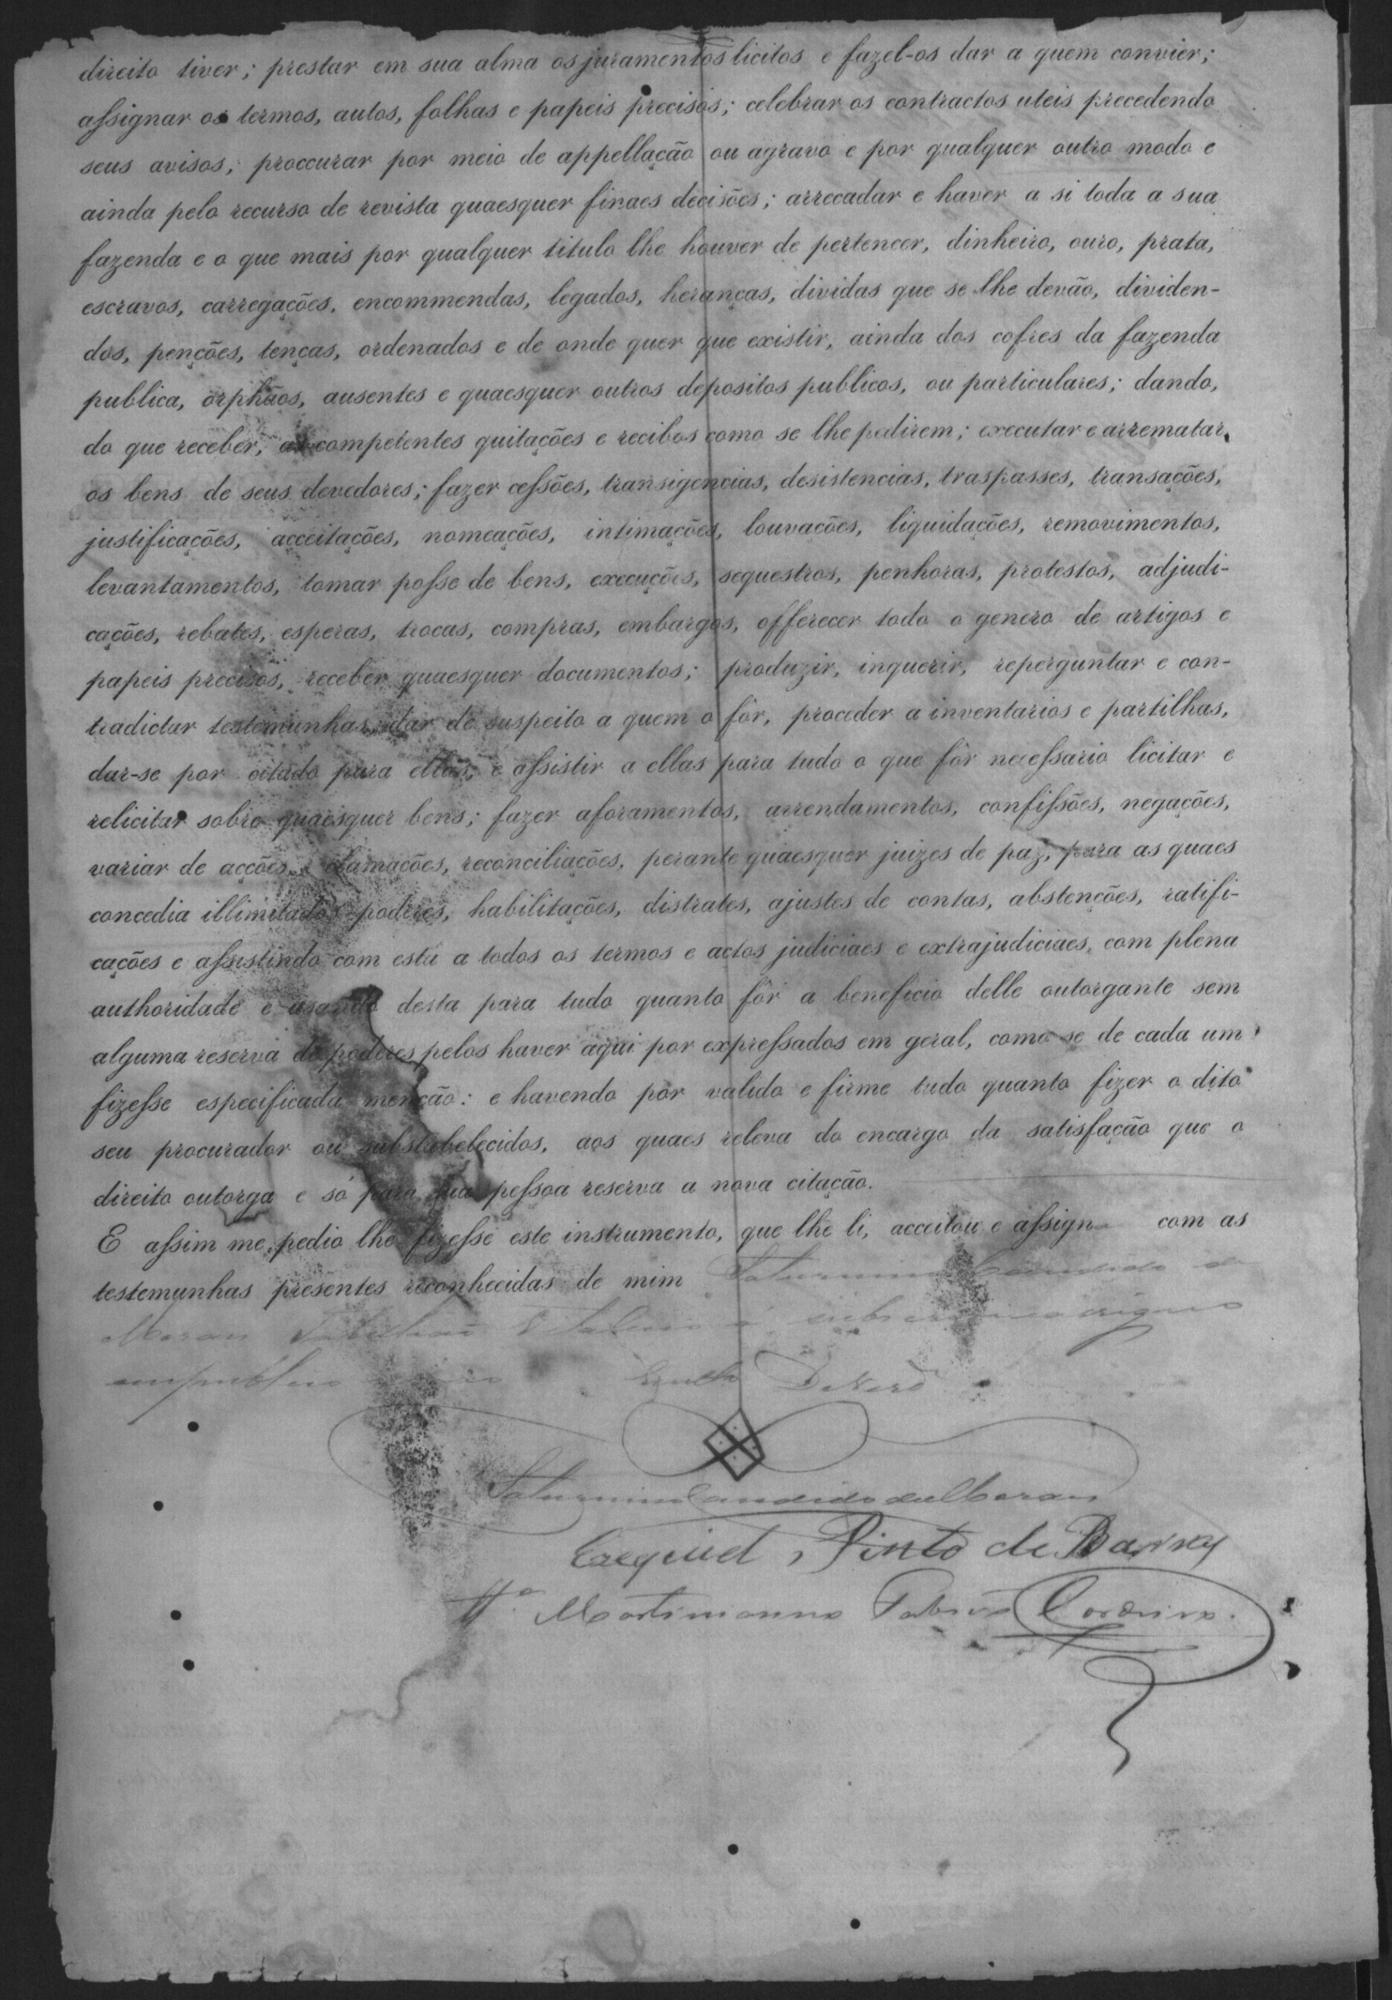 direito tiver; prestar em sua alma os juramentos licitos e fazel-os dar a quem convier;
assignar os termos, autos, folhas e papeis precisos; celebrar os contractos uteis precedendo
seus avisos; proccurar por meio de appellação ou agravo e por qualquer outro modo e
ainda pelo recurso de revista quaesquer finaes decisões; arrecadar e haver a si toda a sua
fazenda e o que mais por qualquer titulo lhe houver de pertencer, dinheiro, ouro, prata,
escravos, carregações, encommendas, legados, heranças, dividas que se lhe devão, dividen-
dos, penções, tenças, ordenados e de onde quer que existir, ainda dos cofres da fazenda
publica, orphãos, ausentes e quaesquer outros depositos publicos, ou particulares; dando,
do que receber, as competentes quitações e recibos como se lhe pedirem; executar e arrematar
os bens de seus devedores; fazer cessões, transigencias, desistencias, traspasses, transações,
justificações, acceitações, nomeações, intimações, louvações, liquidações, removimentos,
levantamentos, tomar posse de bens, execuções, sequestros, penhoras, protestos, adjudi-
cações, rebates, esperas, trocas, compras, embargos, offerecer todo o genero de artigos e
papeis precisos, receber quaesquer documentos; produzir, inquerir, reperguntar e con-
tradictar testemunhas, dar de suspeito a quem o fôr, proceder a inventarios e partilhas,
dar-se por citado para ellas, e assistir a ellas para tudo o que fôr necessario licitar e
relicitar sobre quaesquer bens; fazer aforamentos, arrendamentos, confissões, negações,
variar de acções, reclamações, reconciliações, perante quaesquer juizes de paz, para as quaes
concedia illimitados poderes, habilitações, distrates, ajustes de contas, abstenções, ratifi-
cações e assistindo com esta a todos os termos e actos judiciaes e extrajudiciaes, com plena
authoridade e usando desta para tudo quanto fôr a beneficio delle outorgante sem
alguma reserva de poderes pelos haver aqui por expressados em geral, como se de cada um
fizesse especificada menção: e havendo por valido e firme tudo quanto fizer o dito
seu procurador ou substabelecidos, aos quaes releva do encargo da satisfação que o
direito outorga e só para sua pessoa reserva a nova citação.
E assim me pedio lhe fizesse este instrumento, que lhe li, acceitou e assign com as
testemunhas presentes reconhecidas de mim Saturnino Candido de
Moraes Tabellião
em publico
Saturnino Candido de Moraes
Ezequiel Pinto de Barros
Tª. Cordeiro.